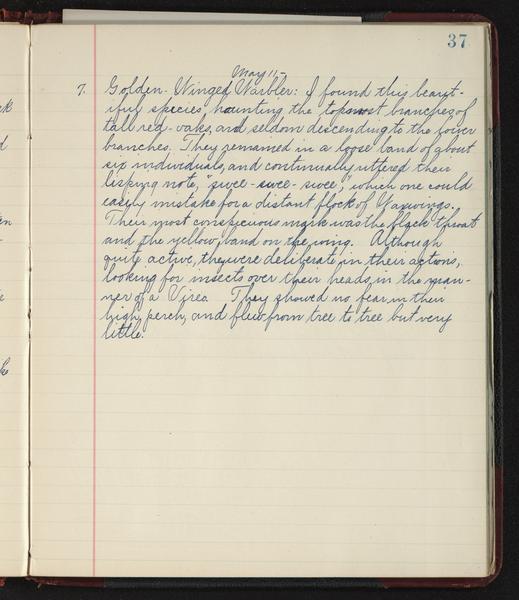 37
May 11-
7. Golden-Winged Warbler: I found this beaut-
iful species haunting the topmost branches of
tall red-oaks, and seldom descending to the lower
branches. They remained in a loose band of about
six individuals, and continually uttered their
lisping note, "swee-swee-swee," which one could
easily mistake for a distant flock of Waxwings.
Their most conspicious mark was the black throat
and the yellow band on the wing. Although
quite active, they were deliberate in their actions,
looking for insects over their heads in the man-
ner of a Virea. They showed no fear in their
high perch, and flew from tree to tree but very
little.